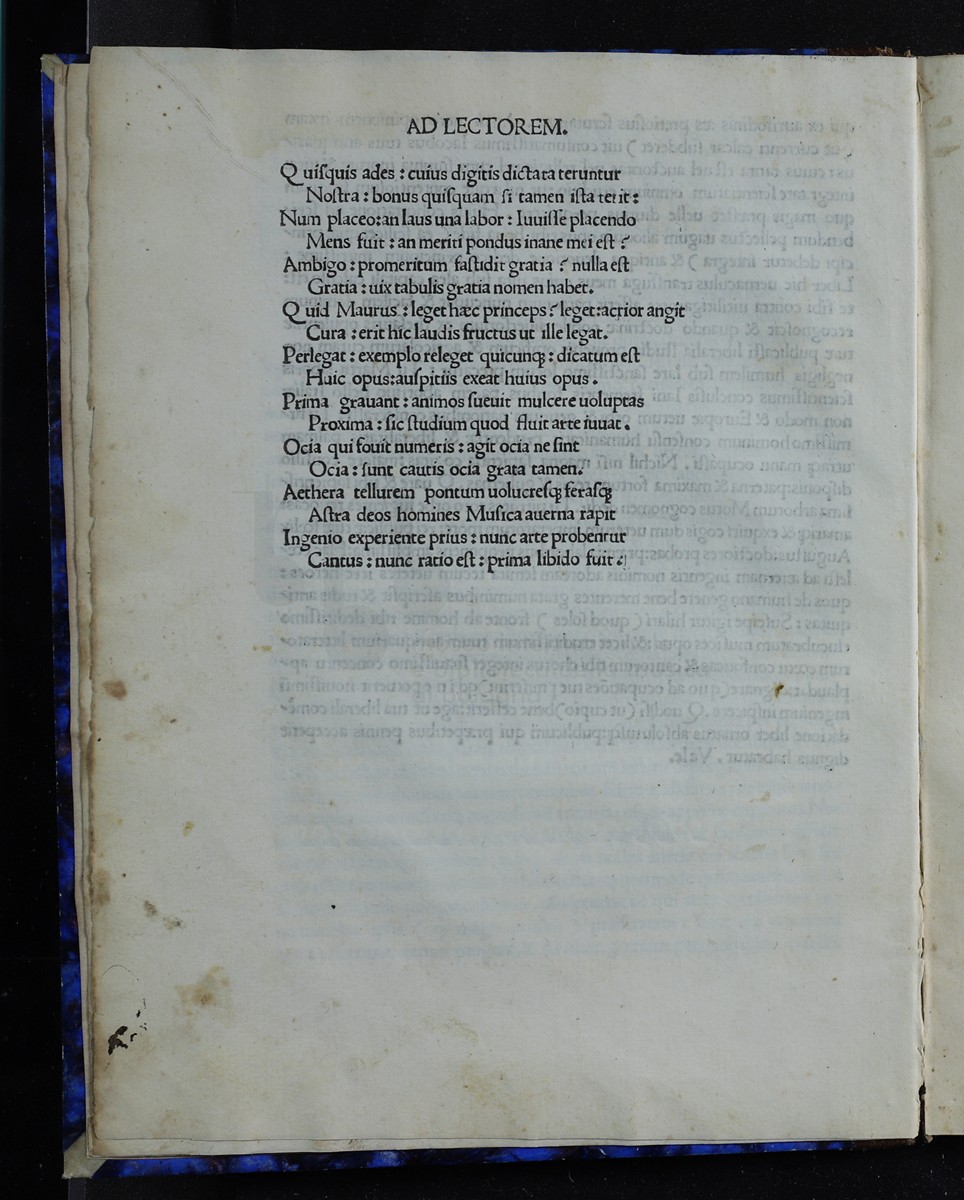 AD LECTOREM.
Quiſquis ades : cuius digitis dictata teruntur
Noſtra : bonus quiſquam ſi tamen iſta terit :
Num placeo: an laus una labor : Iuuiſſe placendo
Mens fuit : an meriti pondus inane mei eſt ?
Ambigo : promeritum faſtidit gratia ? nulla eſt
Gratia : uix tabulis gratia nomen habet.
Quid Maurus : leget hæc princeps ? leget: acrior angit
Cura : erit hic laudis fructus ut ille legat.
Perlegat : exemplo releget quicunꝗ : dicatum eſt
Huic opus: auſpitiis exeat huius opus .
Prima grauant : animos ſueuit mulcere uoluptas
Proxima : ſic ſtudium quod fluit arte iuuat .
Ocia qui fouit numeris : agit ocia ne ſint
Ocia : ſunt cautis ocia grata tamen.
Aethera tellurem pontum uolucreſꝗ feraſꝗ
Aſtra deos homines Muſica auerna rapit
Ingenio experiente prius : nunc arte probentur
Cantus : nunc ratio eſt : prima libido fuit .